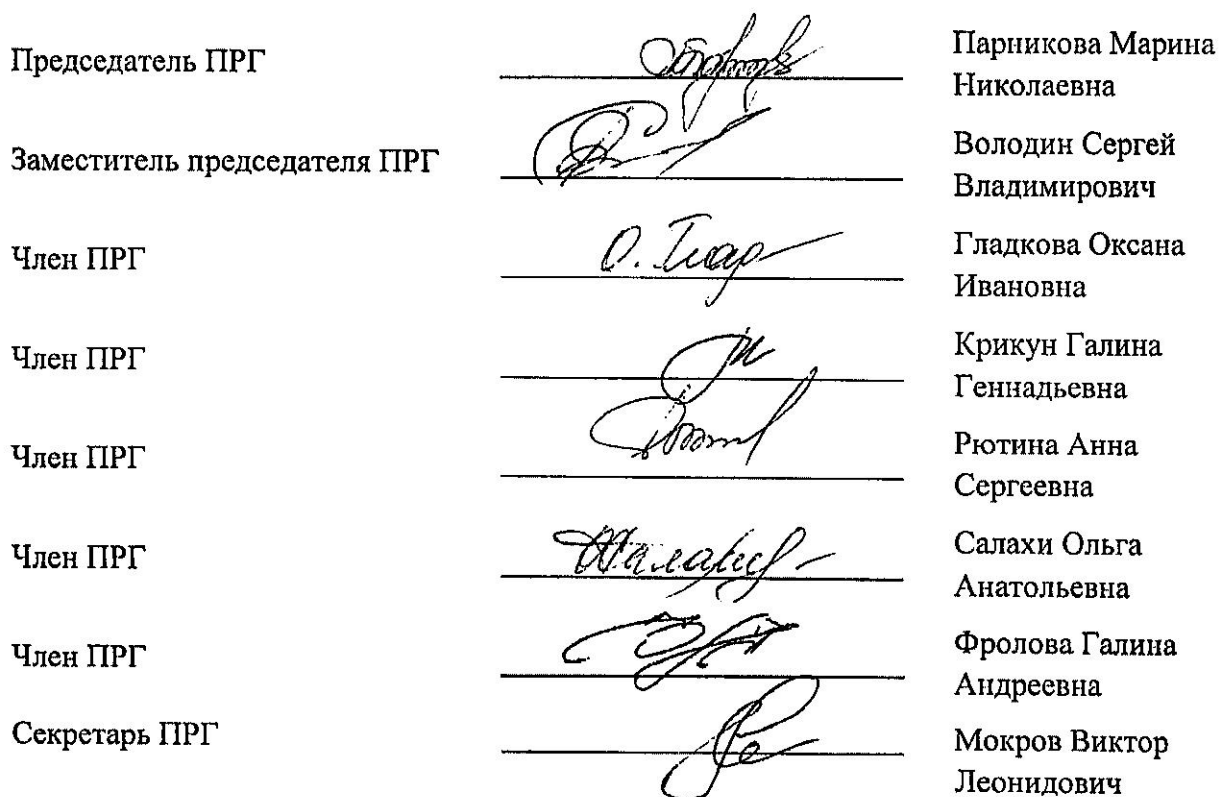 Председатель ПРГ
Парникова Марина
Николаевна
Заместитель председателя ПРГ
Володин Сергей
Владимирович
Член ПРГ
О. Глад
Гладкова Оксана
Ивановна
Член ПРГ
Крикун Галина
Геннадьевна
Член ПРГ
Рютина Анна
Сергеевна
Член ПРГ
Салахи Ольга
Анатольевна
Член ПРГ
Фролова Галина
Андреевна
Секретарь ПРГ
Мокров Виктор
Леонидович